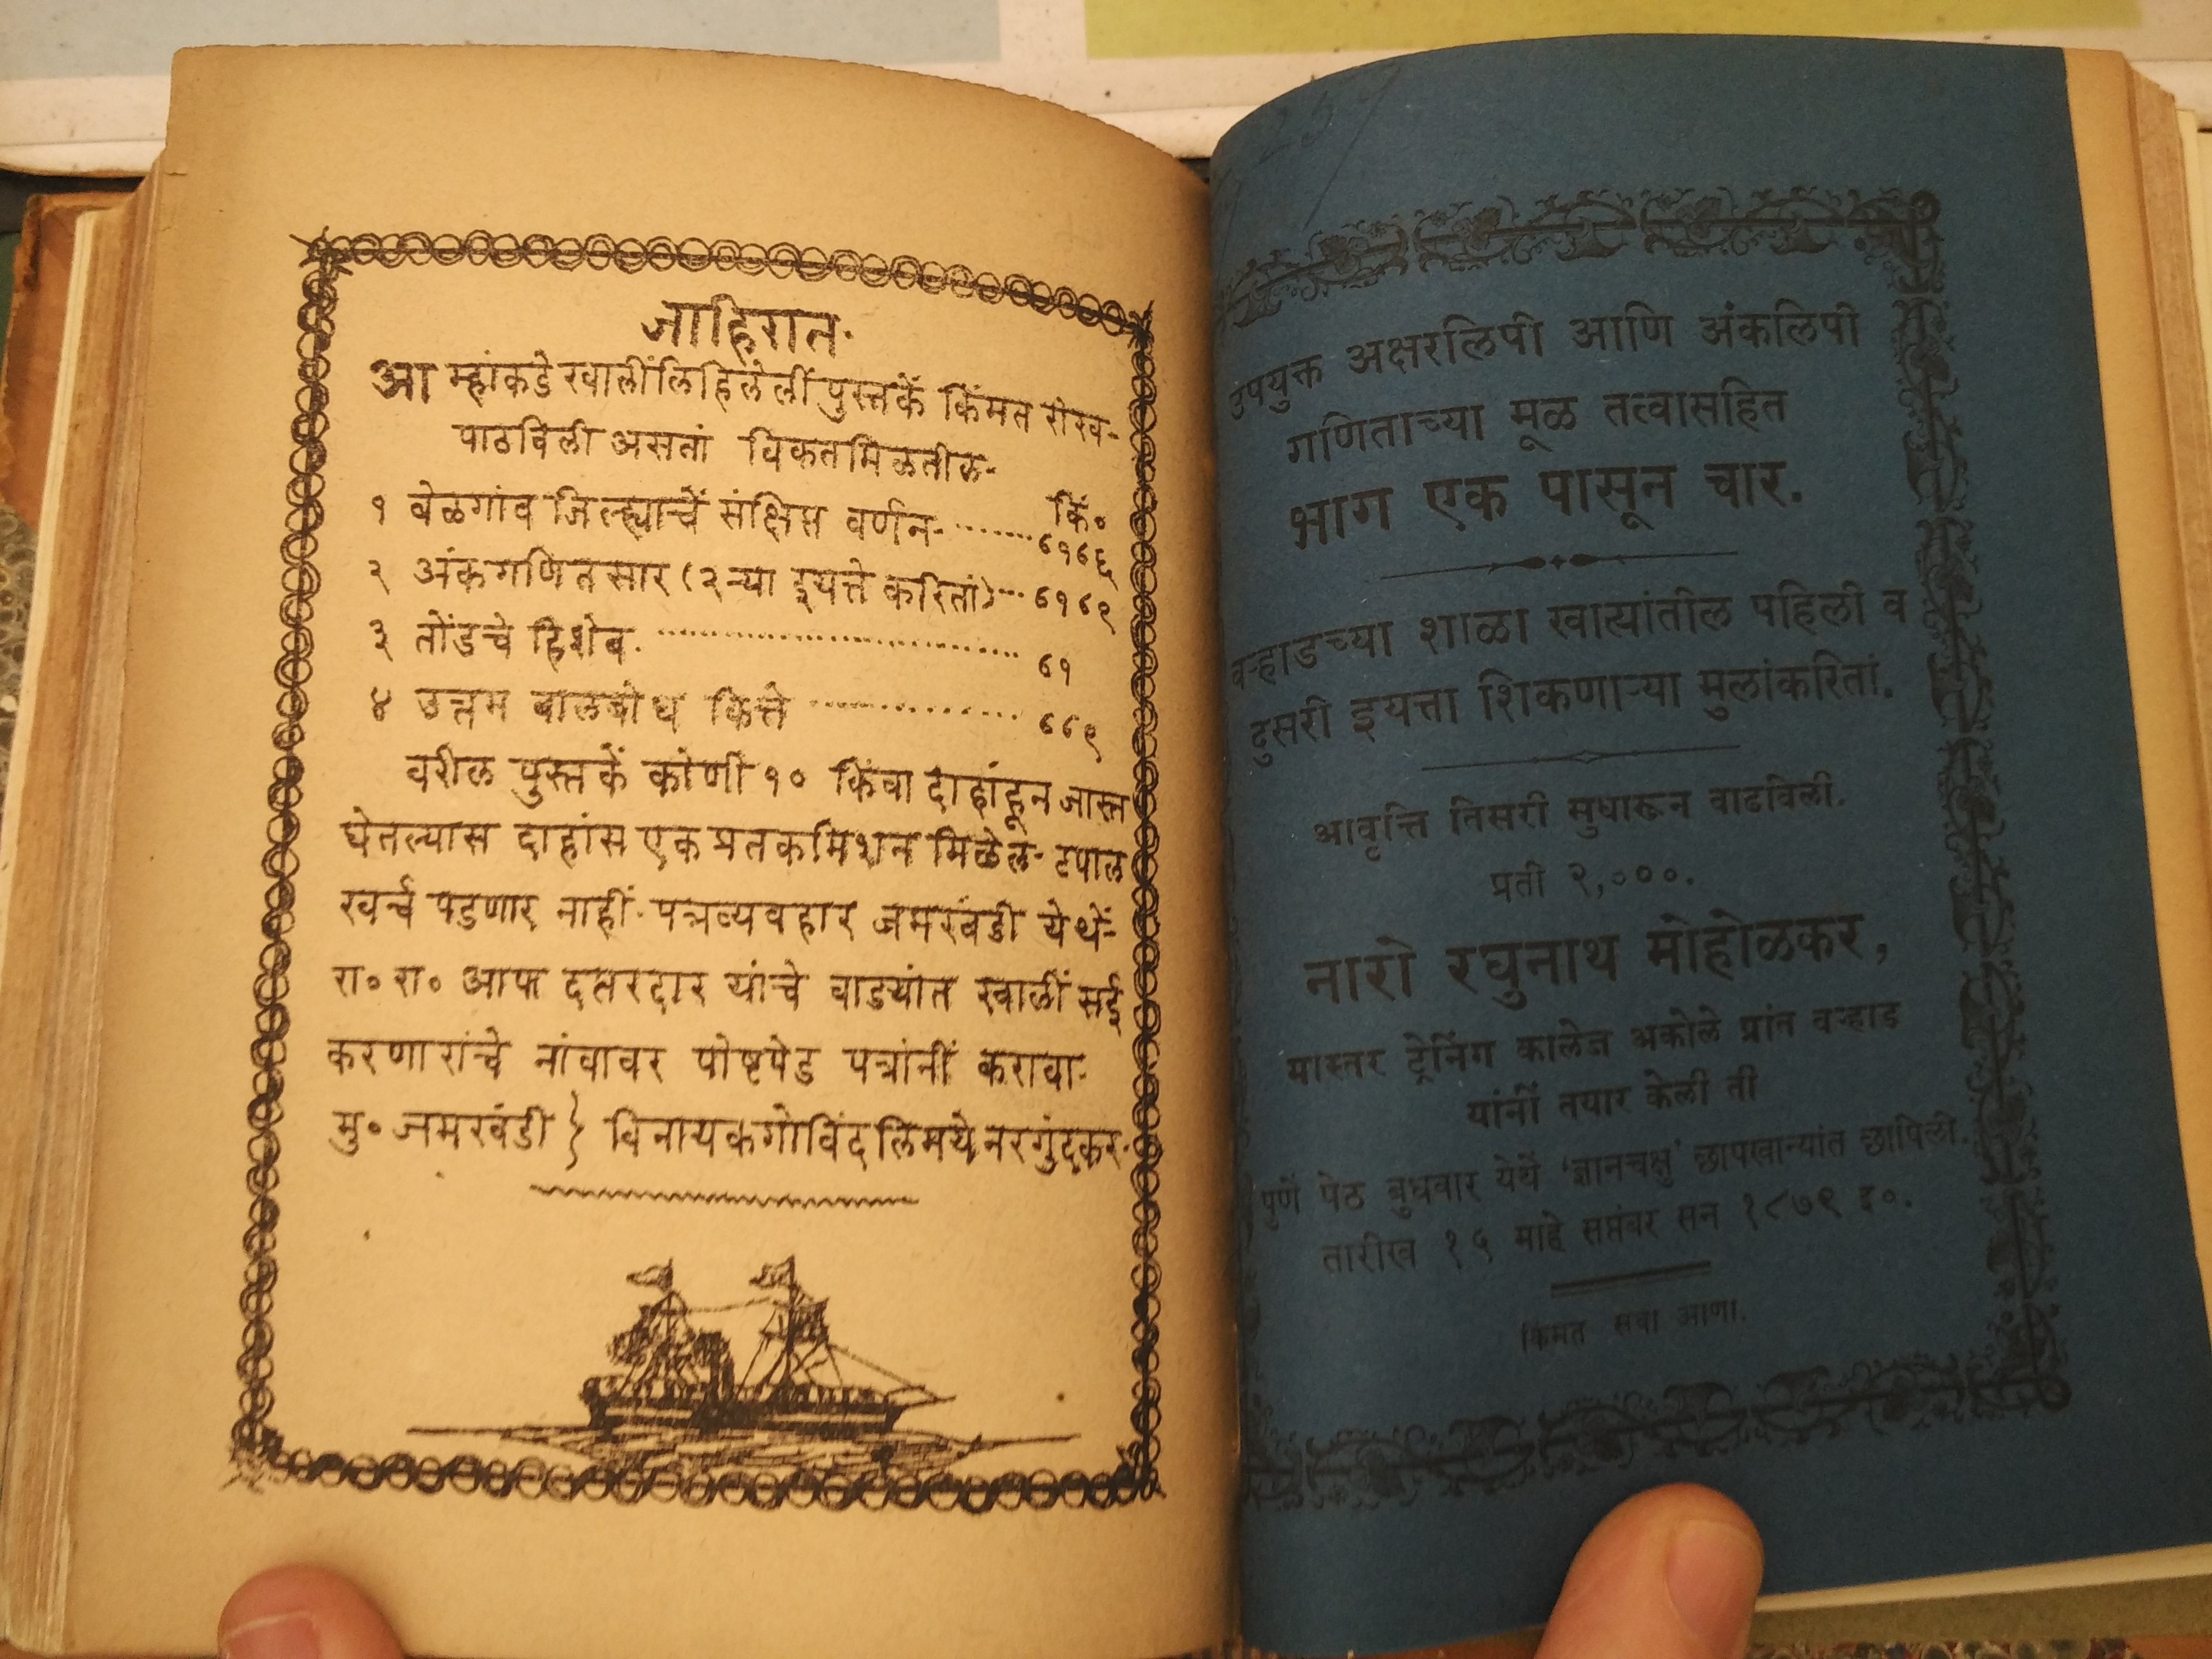 जाहिरात.
आम्हांकडे खालींलिहिलेलीं पुस्तकें किंमत रोख-
पाठविली असतां विकतमिळतील-
किं०
१ बेळगांव जिल्ह्याचें संक्षिप्त वर्णन- ........ ८१८६
२ अंकगणितसार (२ऱ्या इयत्ते करितां) ... ८१८९
३ तोंडचे हिशेब. ........ ८१
४ उत्तम बालबोध कित्ते ........ ८८९
वरील पुस्तकें कोणी १० किंवा दाहांहून जास्त
घेतल्यास दाहांस एक प्रत कमिशन मिळेल- टपाल
खर्च पडणार नाहीं. पत्रव्यवहार जमखंडी येथें-
रा० रा० आफ दप्तरदार यांचे वाड्यांत खालीं सई
करणारांचे नांवावर पोष्टपेड पत्रांनीं करावा-
मु० जमखंडी } विनायक गोविंद लिमये नरगुंदकर.
उपयुक्त अक्षरलिपी आणि अंकलिपी
गणिताच्या मूळ तत्वासहित
भाग एक पासून चार.
वऱ्हाडच्या शाळा खात्यांतील पहिली व
दुसरी इयत्ता शिकणाऱ्या मुलांकरितां.
आवृत्ति तिसरी सुधारून वाढविली.
प्रती २,०००.
नारो रघुनाथ मोहोळकर,
मास्तर ट्रेनिंग कालेज अकोले प्रांत वऱ्हाड
यांनीं तयार केली ती
पुणें पेठ बुधवार येथें 'ज्ञानचक्षु' छापखान्यांत छापिली.
तारीख १५ माहे सप्तंबर सन १८७९ इ०.
किंमत सवा आणा.